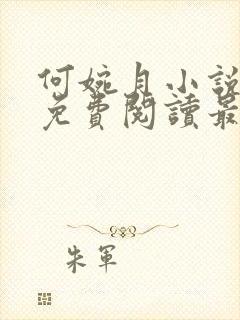 何婉月小說
免費閱讀最
朱軍